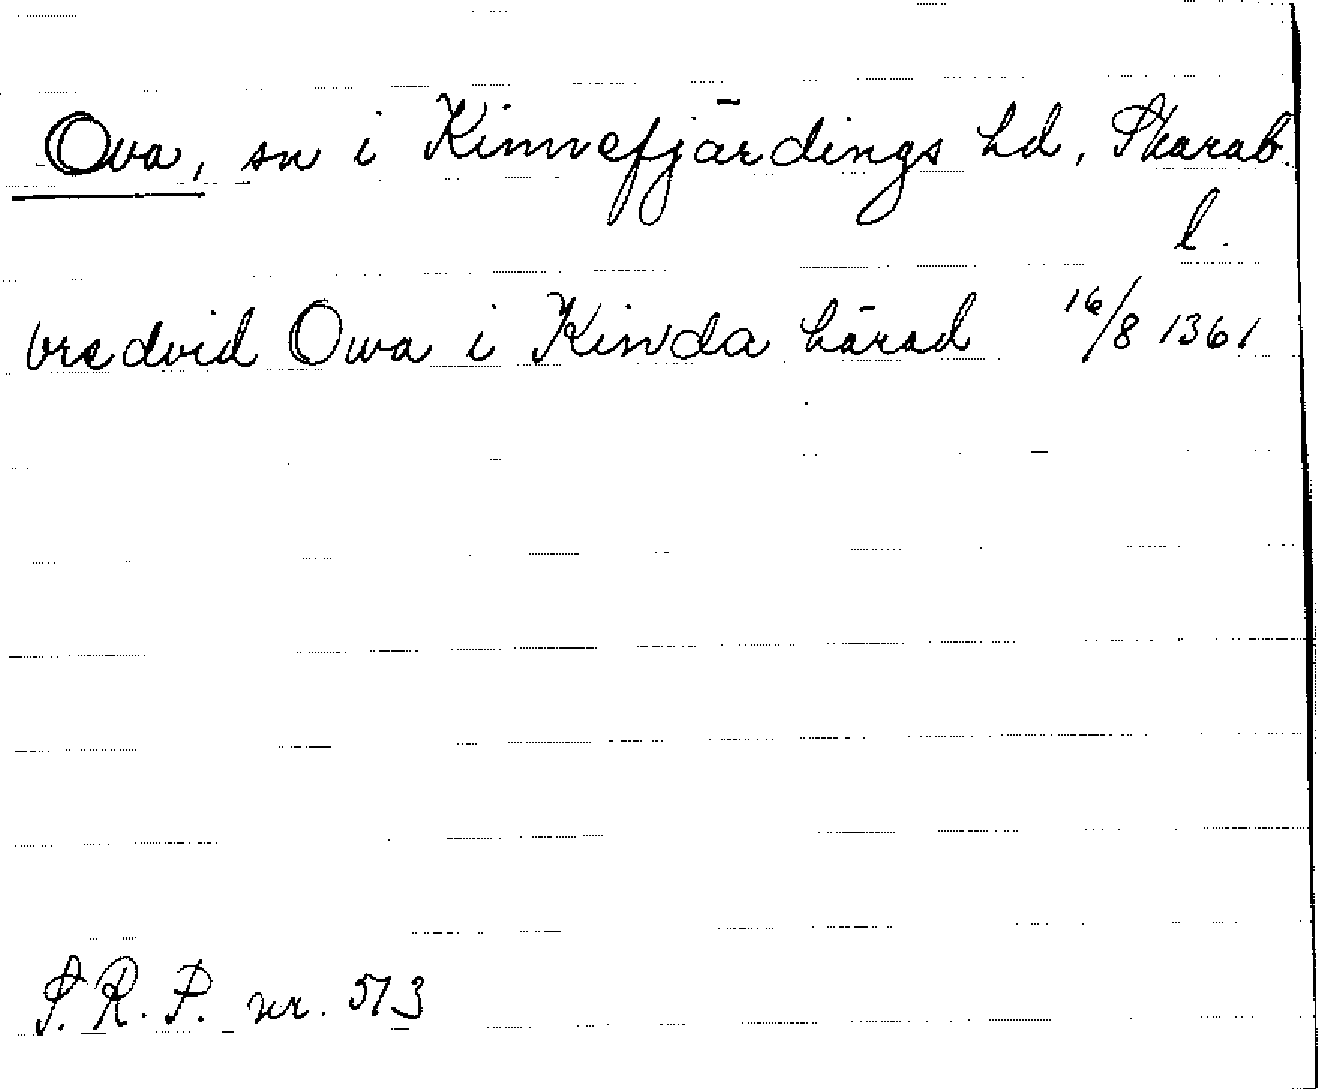 Ova, sn i Kinnefjärdings hd, Skarab.
l.
bredvid Owa i Kinda härad 16/8 1361
S.R.P. nr. 513